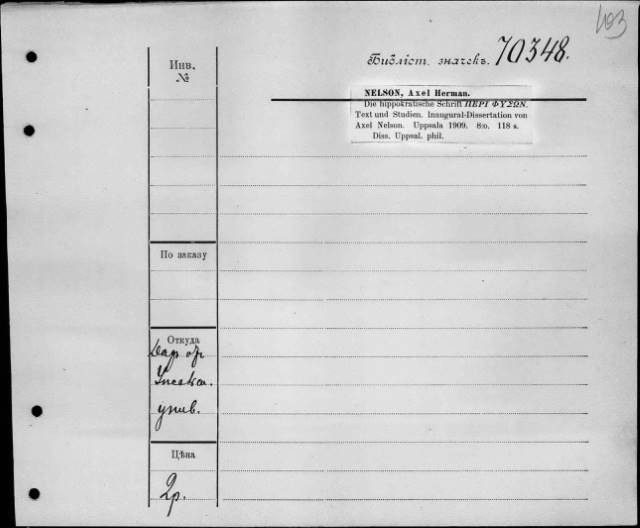 493
Библіот. значекъ. 70348.
Инв.
№
NELSON, Axel Herman.
Die hippokratische Schrift ΠΕΡΙ ΦΥΣΩΝ.
Text und Studien. Inaugural-Dissertation von
Axel Nelson. Uppsala 1909. 8:o. 118 s.
Diss. Uppsal. phil.
По заказу
Откуда
Дар от
унив.
Цѣна
2р.